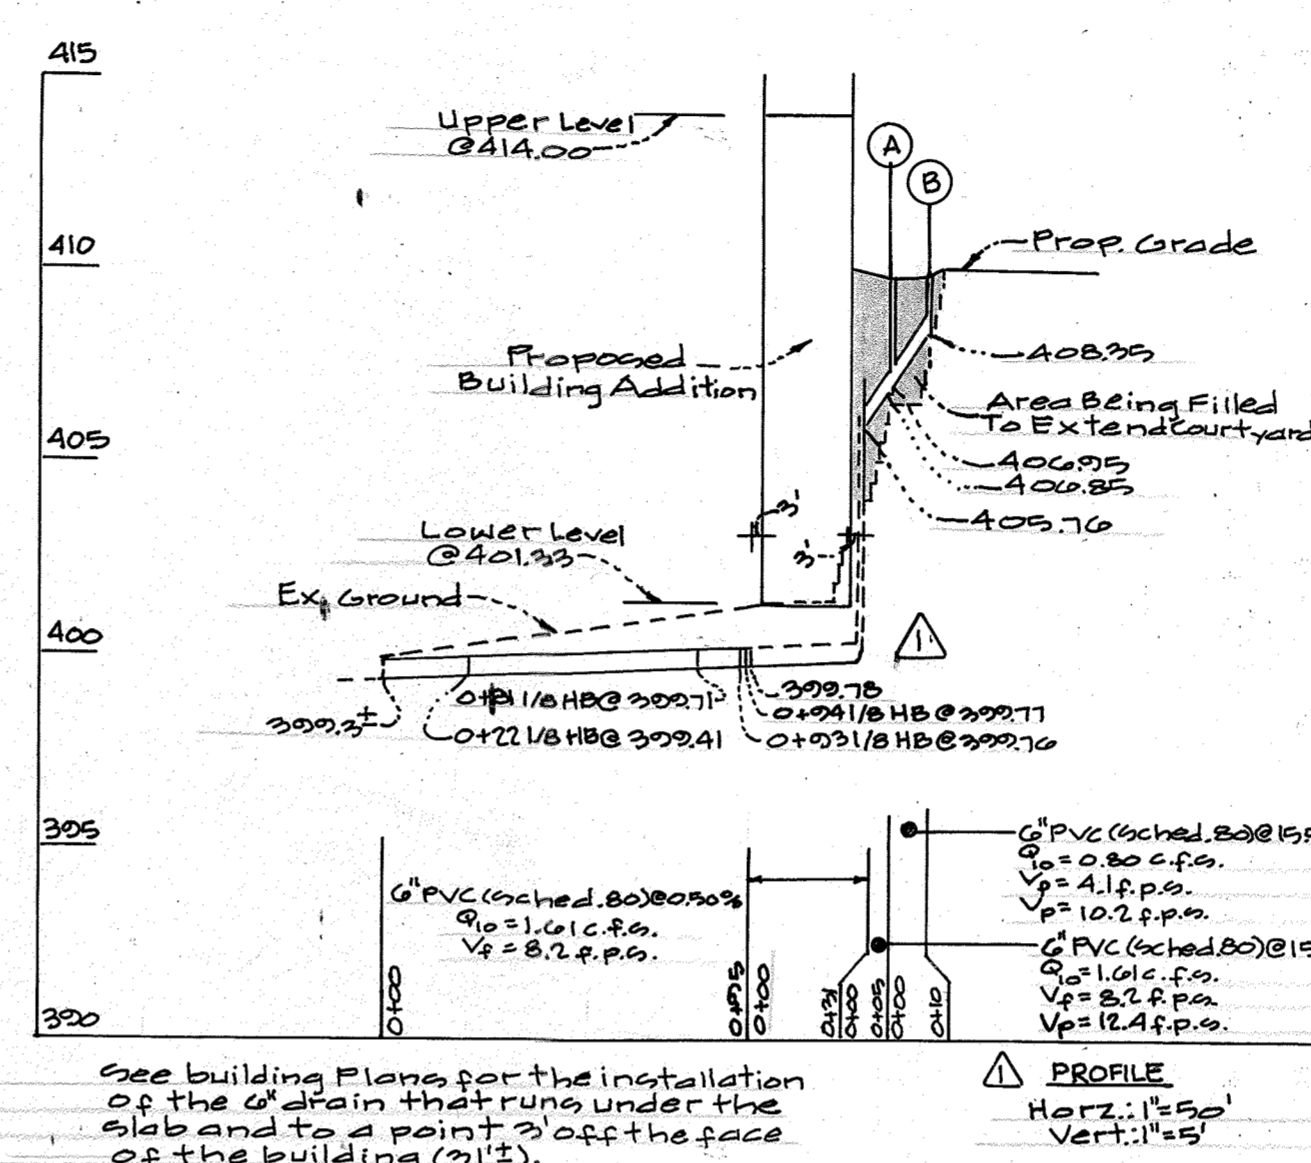 415
Upper Level
@414.00
A
B
410
Prop. Grade
Proposed
Building Addition
408.35
Area Being Filled
To Extend Courtyard
405
406.95
406.85
405.76
3'
Lower Level
@401.33
3'
Ex. Ground
400
1
399.3±
0+81 1/8 HB@ 399.71
0+22 1/8 HB@ 399.41
399.78
0+94 1/8 HB@399.77
0+93 1/8 HB@399.76
395
6" PVC (Sched. 80)@0.50%
Q10=1.61 c.f.s.
Vf=8.2 f.p.s.
6" PVC (Sched. 80)@15
Q10=0.80 c.f.s.
Vf=4.1 f.p.s.
Vp=10.2 f.p.s.
6" PVC (Sched. 80)@15
Q10=1.61 c.f.s.
Vf=8.2 f.p.s.
Vp=12.4 f.p.s.
390
0+00
0+95
0+00
0+31
0+00
0+05
0+00
0+10
See building Plans for the installation
of the 6" drain that runs under the
slab and to a point 3' off the face
of the building (31'±).
1
PROFILE
Horz.: 1"=50'
Vert.: 1"=5'